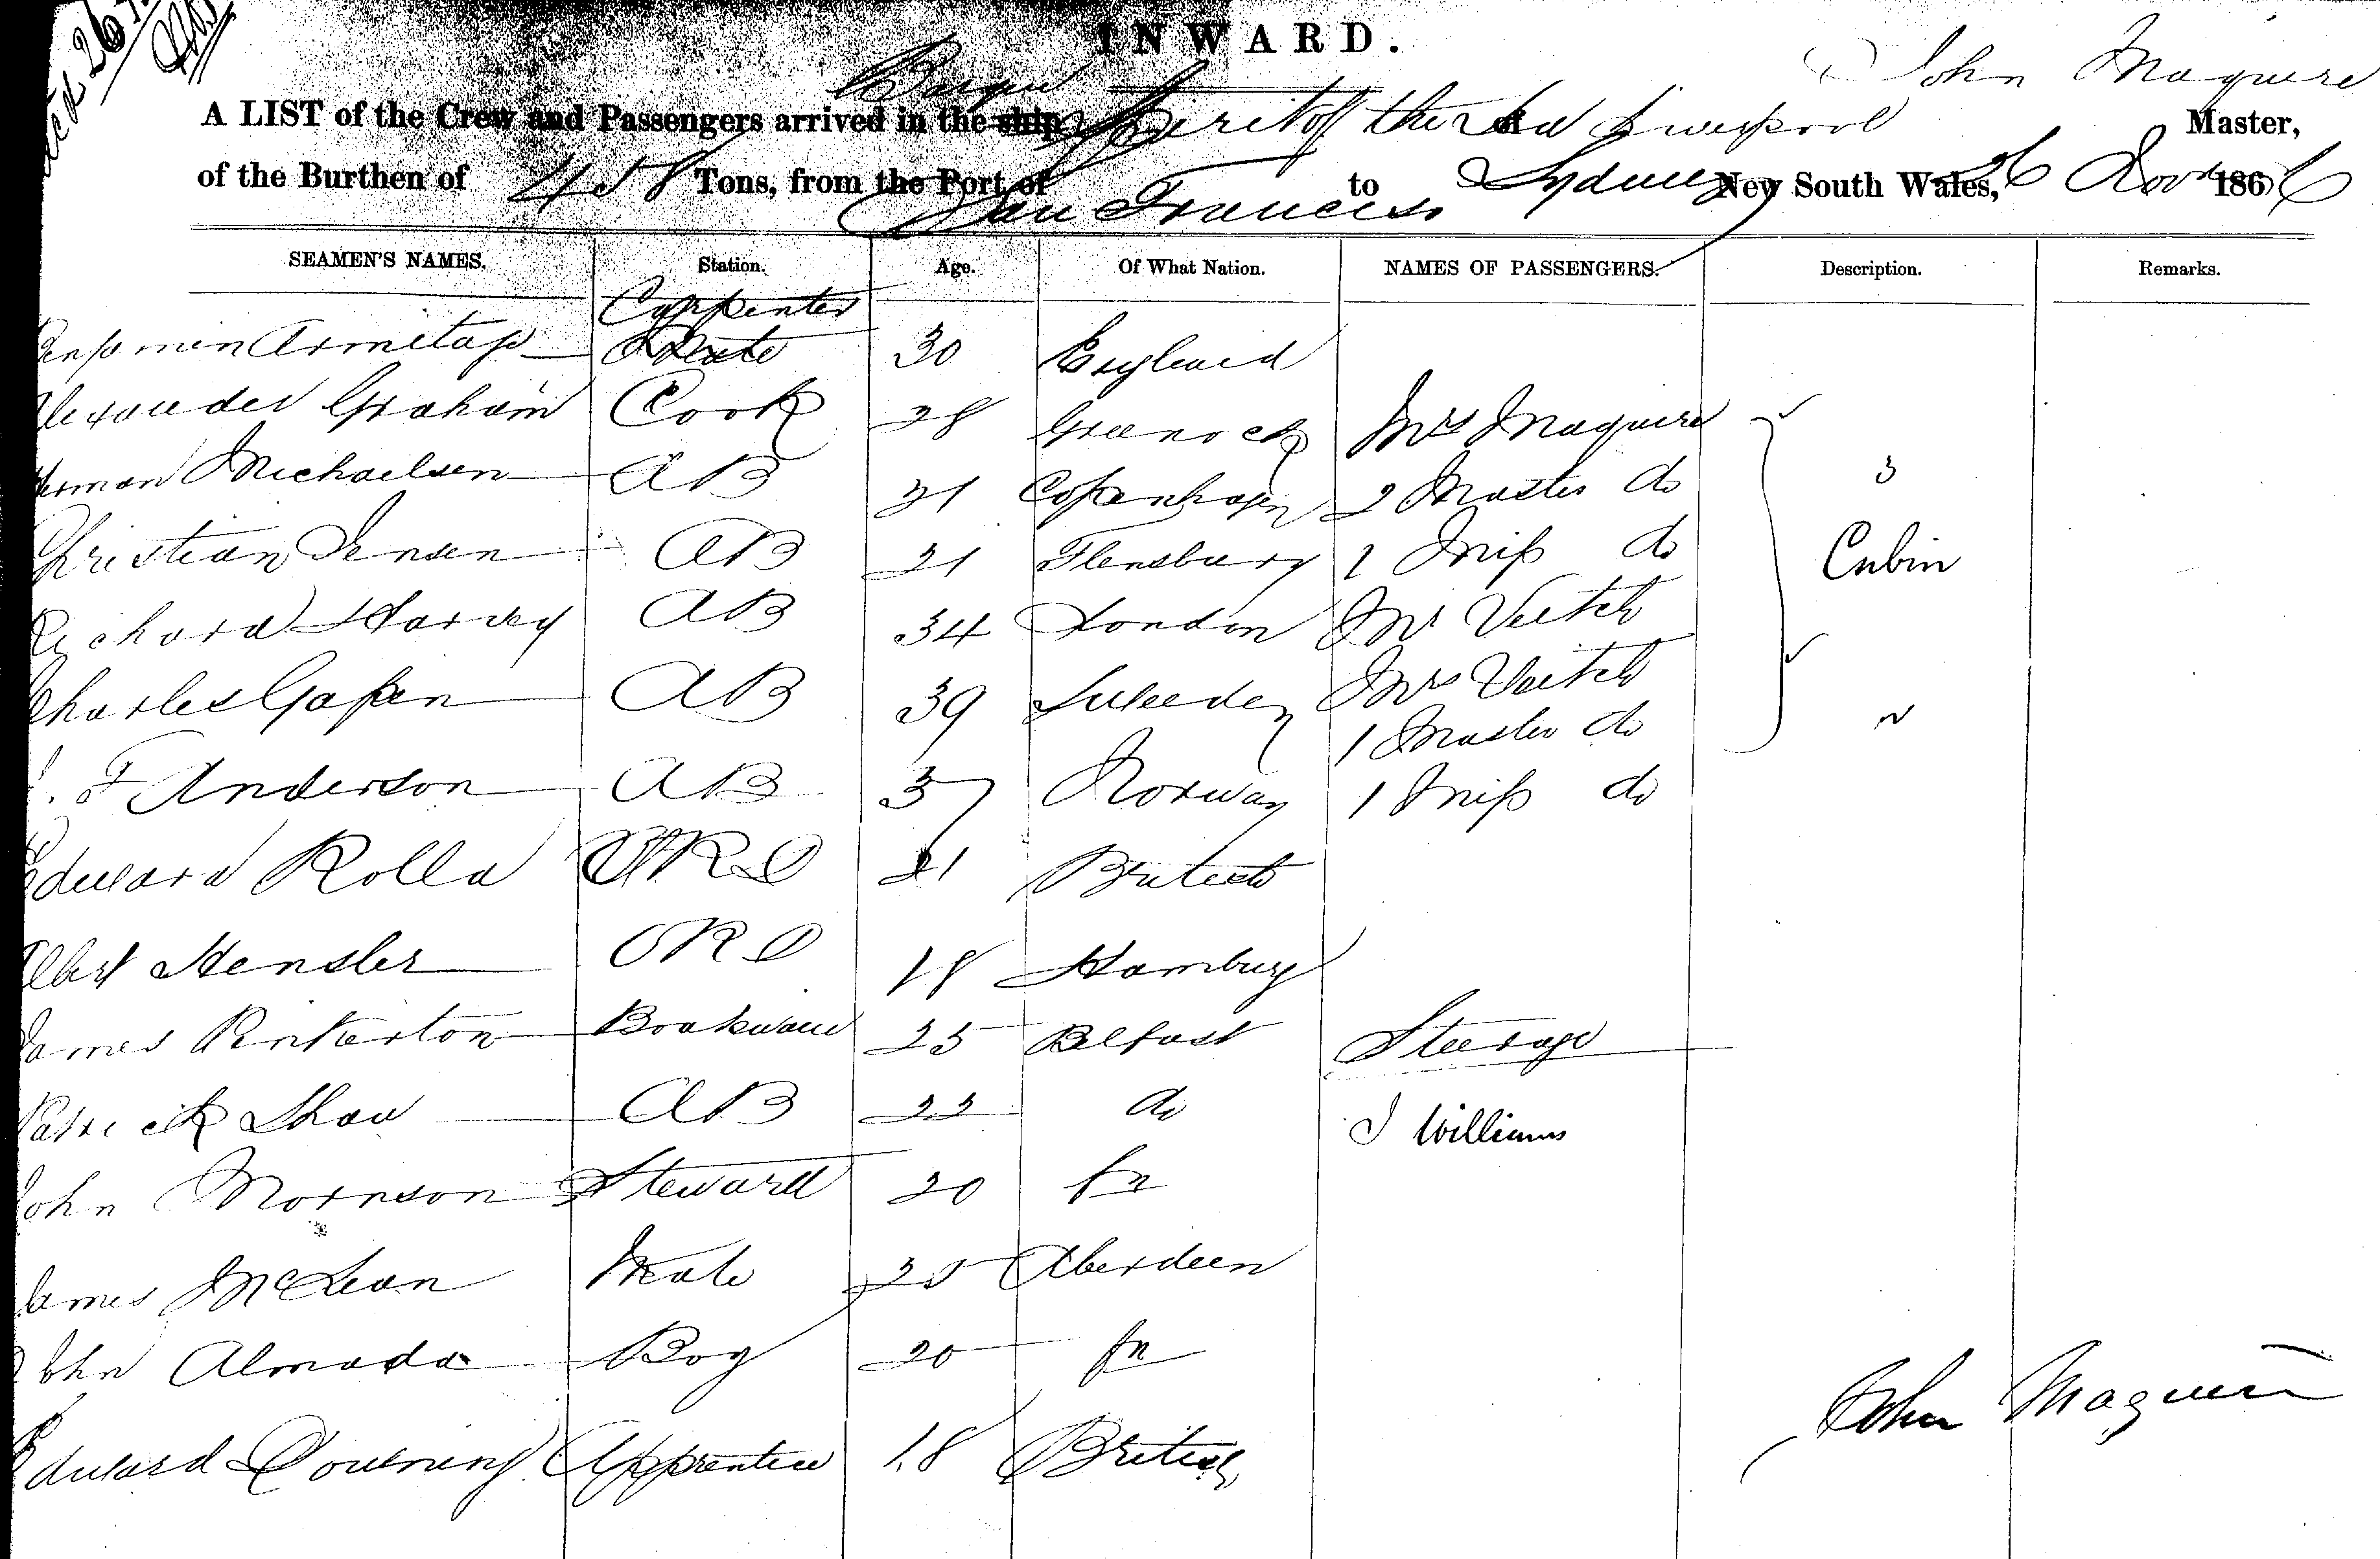 INWARD.
John Maguire
Barque
A LIST of the Crew and Passengers arrived in the ship Spirit of the of Liverpool Master,
of the Burthen of 458 Tons, from the Port of San Francisco to Sydney New South Wales, 26 Nov 1866
SEAMEN'S NAMES. Station. Age. Of What Nation. NAMES OF PASSENGERS. Description. Remarks.
Carpenter
Benjamin Armitage Mate 30 England
Alexander Graham Cook 28 Greenock Mrs Maguire
Herman Michaelsen AB 21 Copenhagen 2 Master do 3
Christian Jensen AB 21 Flensburg 1 Miss do Cabin
Richard Harvey AB 34 London Mr Veitch
Charles AB 39 Sweeden Mrs Veitch
1 Master do
F Anderson AB 37 Norway 1 Miss do
Edward Rolla ORD 21
Albert Hensler ORD 18 Hamburg
James Pinkerton 25 Belfast Steerage
Patrick Shaw AB 22 do J Williams
John Morrison Steward 20 fn
James McLean Mate 25 Aberdeen
John Almada Boy 20 fn
John Maguire
Edward Downing Apprentice 18 British